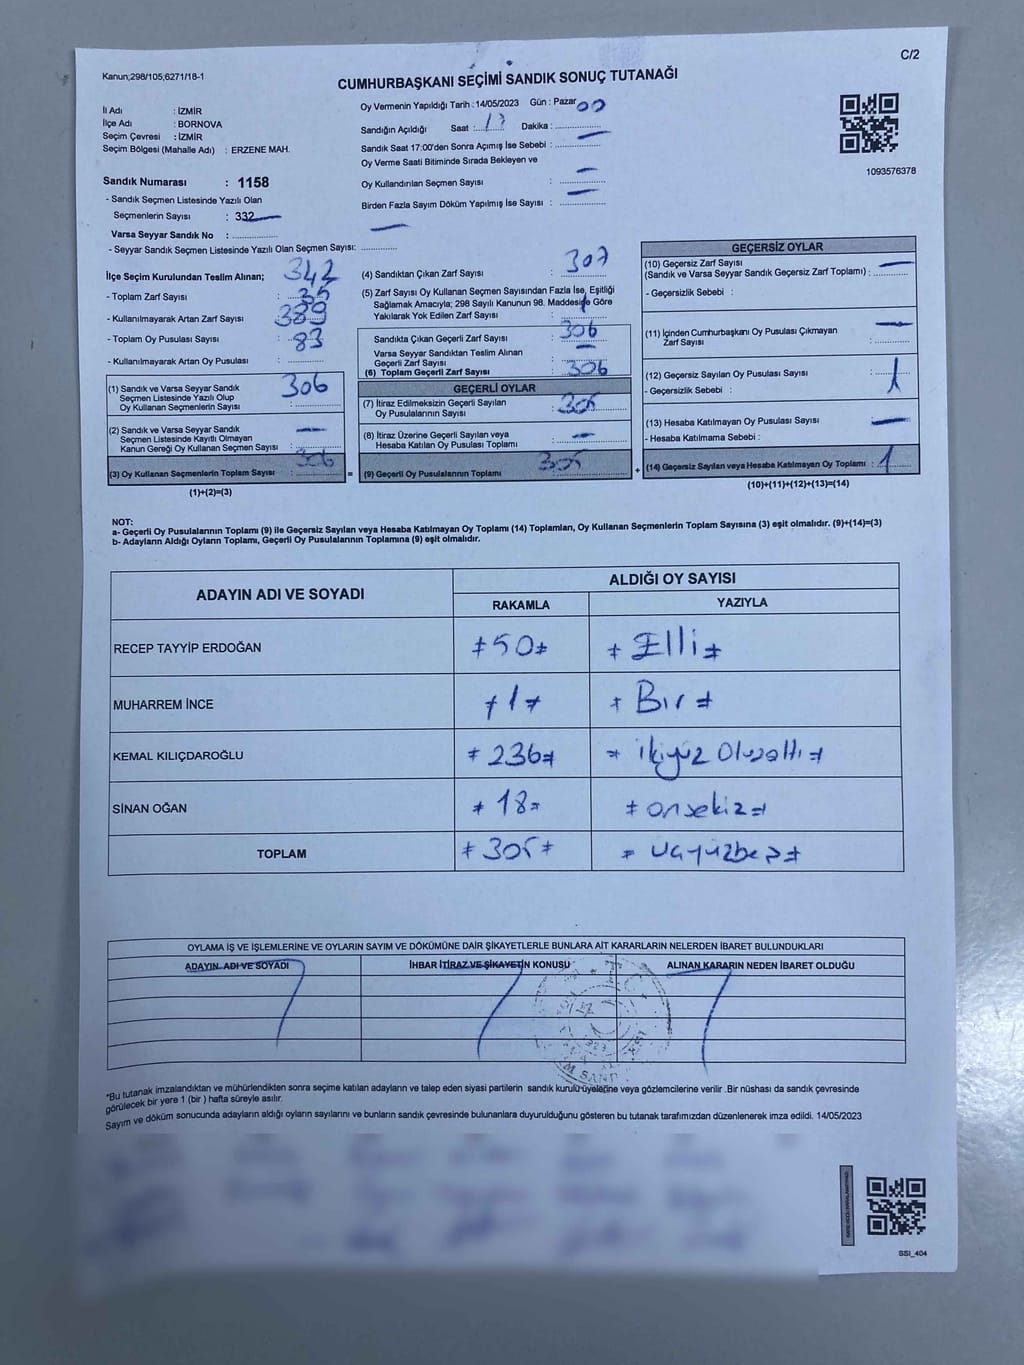 C/2
Kanun;298/105;6271/18-1
CUMHURBAŞKANI SEÇİMİ SANDIK SONUÇ TUTANAĞI
İl Adı : İZMİR
İlçe Adı : BORNOVA
Seçim Çevresi : İZMİR
Seçim Bölgesi (Mahalle Adı) : ERZENE MAH.
Oy Vermenin Yapıldığı Tarih : 14/05/2023 Gün : Pazar
Sandığın Açıldığı Saat : 17 Dakika : 00
Sandık Saat 17:00'den Sonra Açımış İse Sebebi : —
Oy Verme Saati Bitiminde Sırada Bekleyen ve
Oy Kullandırılan Seçmen Sayısı : —
Birden Fazla Sayım Döküm Yapılmış İse Sayısı : —
1093576378
Sandık Numarası : 1158
- Sandık Seçmen Listesinde Yazılı Olan
Seçmenlerin Sayısı : 332
Varsa Seyyar Sandık No : —
- Seyyar Sandık Seçmen Listesinde Yazılı Olan Seçmen Sayısı: —
İlçe Seçim Kurulundan Teslim Alınan;
- Toplam Zarf Sayısı : 342
- Kullanılmayarak Artan Zarf Sayısı : 35
- Toplam Oy Pusulası Sayısı : 389
- Kullanılmayarak Artan Oy Pusulası : 83
(1) Sandık ve Varsa Seyyar Sandık
Seçmen Listesinde Yazılı Olup
Oy Kullanan Seçmenlerin Sayısı : 306
(2) Sandık ve Varsa Seyyar Sandık
Seçmen Listesinde Kayıtlı Olmayan
Kanun Gereği Oy Kullanan Seçmen Sayısı : —
(3) Oy Kullanan Seçmenlerin Toplam Sayısı : 306
(1)+(2)=(3)
(4) Sandıktan Çıkan Zarf Sayısı : 307
(5) Zarf Sayısı Oy Kullanan Seçmen Sayısından Fazla İse, Eşitliği
Sağlamak Amacıyla; 298 Sayılı Kanunun 98. Maddesine Göre
Yakılarak Yok Edilen Zarf Sayısı : 1
Sandıkta Çıkan Geçerli Zarf Sayısı : 306
Varsa Seyyar Sandıktan Teslim Alınan
Geçerli Zarf Sayısı : —
(6) Toplam Geçerli Zarf Sayısı : 306
GEÇERLİ OYLAR
(7) İtiraz Edilmeksizin Geçerli Sayılan
Oy Pusulalarının Sayısı : 305
(8) İtiraz Üzerine Geçerli Sayılan veya
Hesaba Katılan Oy Pusulası Toplamı : —
= (9) Geçerli Oy Pusulalarının Toplamı : 305
GEÇERSİZ OYLAR
(10) Geçersiz Zarf Sayısı
(Sandık ve Varsa Seyyar Sandık Geçersiz Zarf Toplamı) : —
- Geçersizlik Sebebi :
(11) İçinden Cumhurbaşkanı Oy Pusulası Çıkmayan
Zarf Sayısı : —
(12) Geçersiz Sayılan Oy Pusulası Sayısı : 1
- Geçersizlik Sebebi :
(13) Hesaba Katılmayan Oy Pusulası Sayısı : —
- Hesaba Katılmama Sebebi :
+ (14) Geçersiz Sayılan veya Hesaba Katılmayan Oy Toplamı : 1
(10)+(11)+(12)+(13)=(14)
NOT:
a- Geçerli Oy Pusulalarının Toplamı (9) ile Geçersiz Sayılan veya Hesaba Katılmayan Oy Toplamı (14) Toplamları, Oy Kullanan Seçmenlerin Toplam Sayısına (3) eşit olmalıdır. (9)+(14)=(3)
b- Adayların Aldığı Oyların Toplamı, Geçerli Oy Pusulalarının Toplamına (9) eşit olmalıdır.
ADAYIN ADI VE SOYADI ALDIĞI OY SAYISI
RAKAMLA YAZIYLA
RECEP TAYYİP ERDOĞAN 50 Elli
MUHARREM İNCE 1 Bir
KEMAL KILIÇDAROĞLU 236 ikiyüz Otuzaltı
SİNAN OĞAN 18 onsekiz
TOPLAM 305 üçyüzbeş
OYLAMA İŞ VE İŞLEMLERİNE VE OYLARIN SAYIM VE DÖKÜMÜNE DAİR ŞİKAYETLERLE BUNLARA AİT KARARLARIN NELERDEN İBARET BULUNDUKLARI
ADAYIN ADI VE SOYADI İHBAR İTİRAZ VE ŞİKAYETİN KONUSU ALINAN KARARIN NEDEN İBARET OLDUĞU
T.C.
*Bu tutanak imzalandıktan ve mühürlendikten sonra seçime katılan adayların ve talep eden siyasi partilerin sandık kurulu üyelerine veya gözlemcilerine verilir .Bir nüshası da sandık çevresinde
görülecek bir yere 1 (bir ) hafta süreyle asılır.
Sayım ve döküm sonucunda adayların aldığı oyların sayılarını ve bunların sandık çevresinde bulunanlara duyurulduğunu gösteren bu tutanak tarafımızdan düzenlenerek imza edildi. 14/05/2023
SSI_404